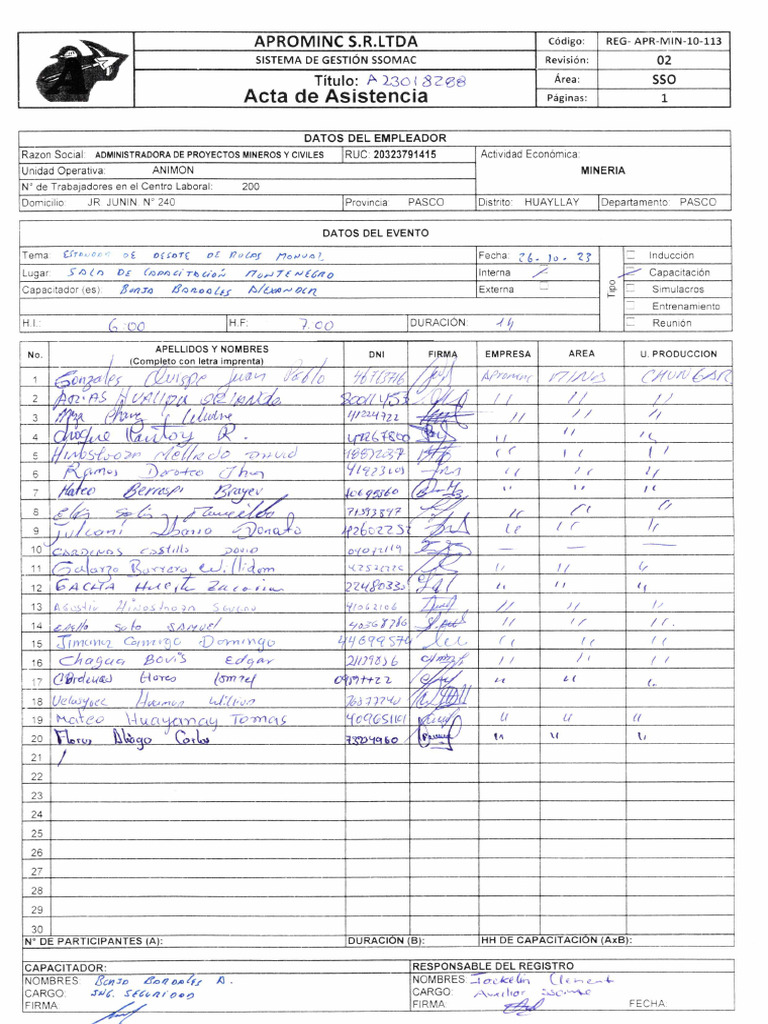 APROMINC S.R.LTDA
SISTEMA DE GESTIÓN SSOMAC
Título: A23018288
Acta de Asistencia
Código: REG- APR-MIN-10-113
Revisión: 02
Área: SSO
Páginas: 1
DATOS DEL EMPLEADOR
Razon Social: ADMINISTRADORA DE PROYECTOS MINEROS Y CIVILES RUC: 20323791415 Actividad Económica:
Unidad Operativa: ANIMON MINERIA
N° de Trabajadores en el Centro Laboral: 200
Domicilio: JR JUNIN N° 240 Provincia: PASCO Distrito: HUAYLLAY Departamento: PASCO
DATOS DEL EVENTO
Tema: ESTANDAR DE DESATE DE ROCAS MANUAL Fecha: 26-10-23
Lugar: SALA DE CAPACITACIÓN MONTENEGRO Interna
Capacitador (es): BORJA BARDALES ALEXANDER Externa
Tipo
Inducción
Capacitación
Simulacros
Entrenamiento
Reunión
H.I.: 6:00 H.F: 7:00 DURACIÓN: 1H
No. APELLIDOS Y NOMBRES (Completo con letra imprenta) DNI FIRMA EMPRESA AREA U. PRODUCCION
1 Gonzales Quispe Juan Pablo Aprominc MINA CHUNGAR
2 ARIAS HUALIPA ORLANDO 80011453 " " "
3 Chavez 41224722 " " "
4 Choque Pantoy R. " " "
5 Hinostroza Mellado David " " "
6 Ramos Doroteo Jhon 41923103 " " "
7 Mateo Berrospi Brayev " " "
8 Solis 71593897 " " "
9 Juliani Ibarra Donato 42602252 " " "
10 CARDENAS CASTILLO DAVID 04072119 — — —
11 Galarza Barrera William " " "
12 22480335 " " "
13 Agustin Hinostroza 41062106 " " "
14 Soto SAMUEL 40368786 " " "
15 Jimenez Camargo Domingo 44699574 " " "
16 Chagua Edgar " " "
17 Cárdenas Flores " " "
18 Velasquez Huaman William " " "
19 Mateo Huayanay Tomas " " "
20 Flores Aliaga Carlos 73224960 " " "
21
22
23
24
25
26
27
28
29
30
N° DE PARTICIPANTES (A): DURACIÓN (B): HH DE CAPACITACIÓN (AxB):
CAPACITADOR: RESPONSABLE DEL REGISTRO
NOMBRES: BORJA BARDALES A. NOMBRES: Jackelin Clement
CARGO: ING. SEGURIDAD CARGO: Auxiliar
FIRMA: FIRMA: FECHA: